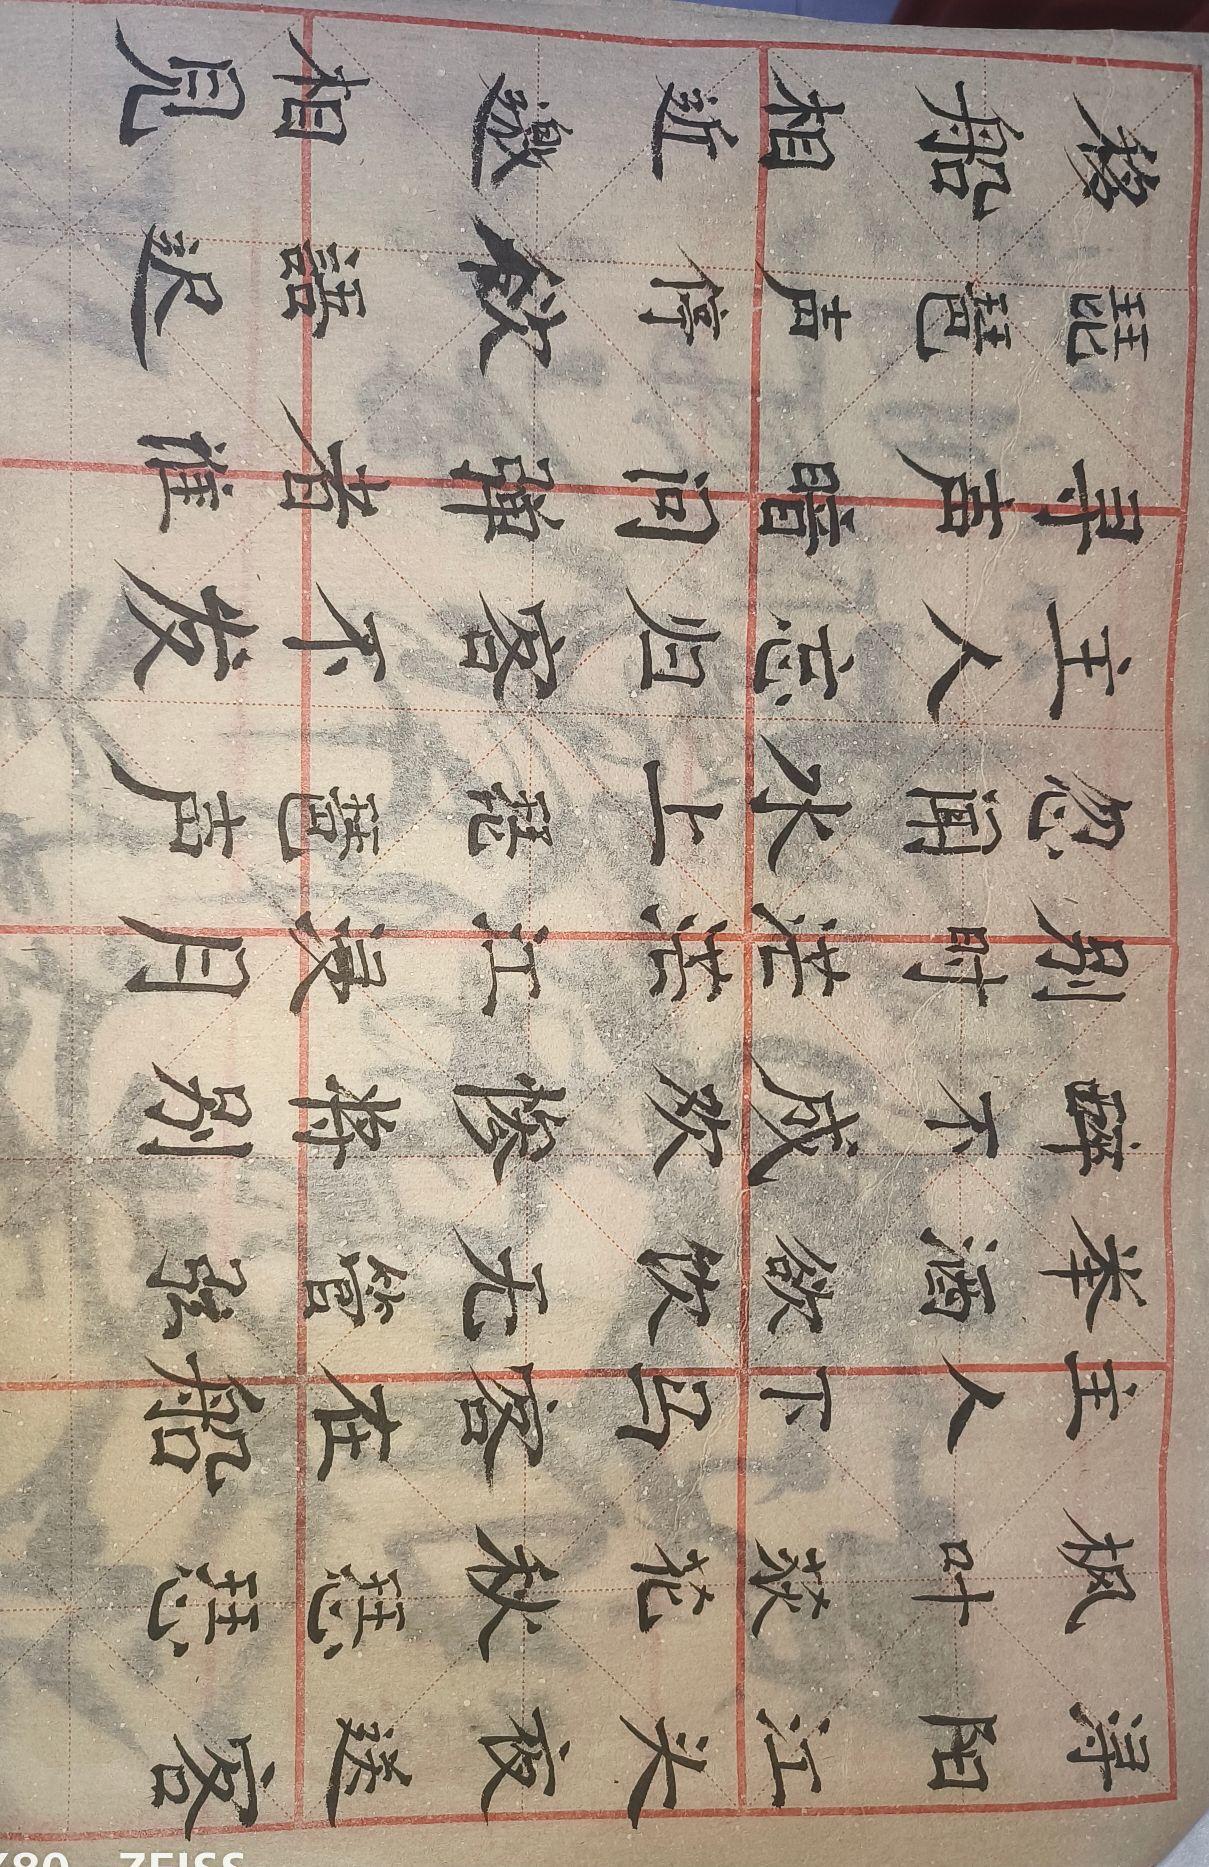 浔阳江头夜送客
枫叶荻花秋瑟瑟
主人下马客在船
举酒欲饮无管弦
醉不成欢惨将别
别时茫茫江浸月
忽闻水上琵琶声
主人忘归客不发
寻声暗问弹者谁
琵琶声停欲語迟
移船相近邀相见